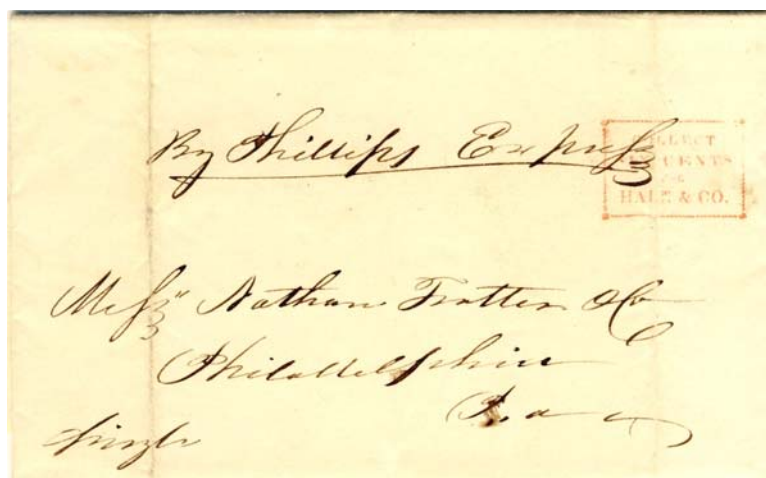 By Phillips Express
COLLECT
CENTS
FOR
HALE & CO.
Messrs Nathan Trotter & Co
Philadelphia
Pa
Single